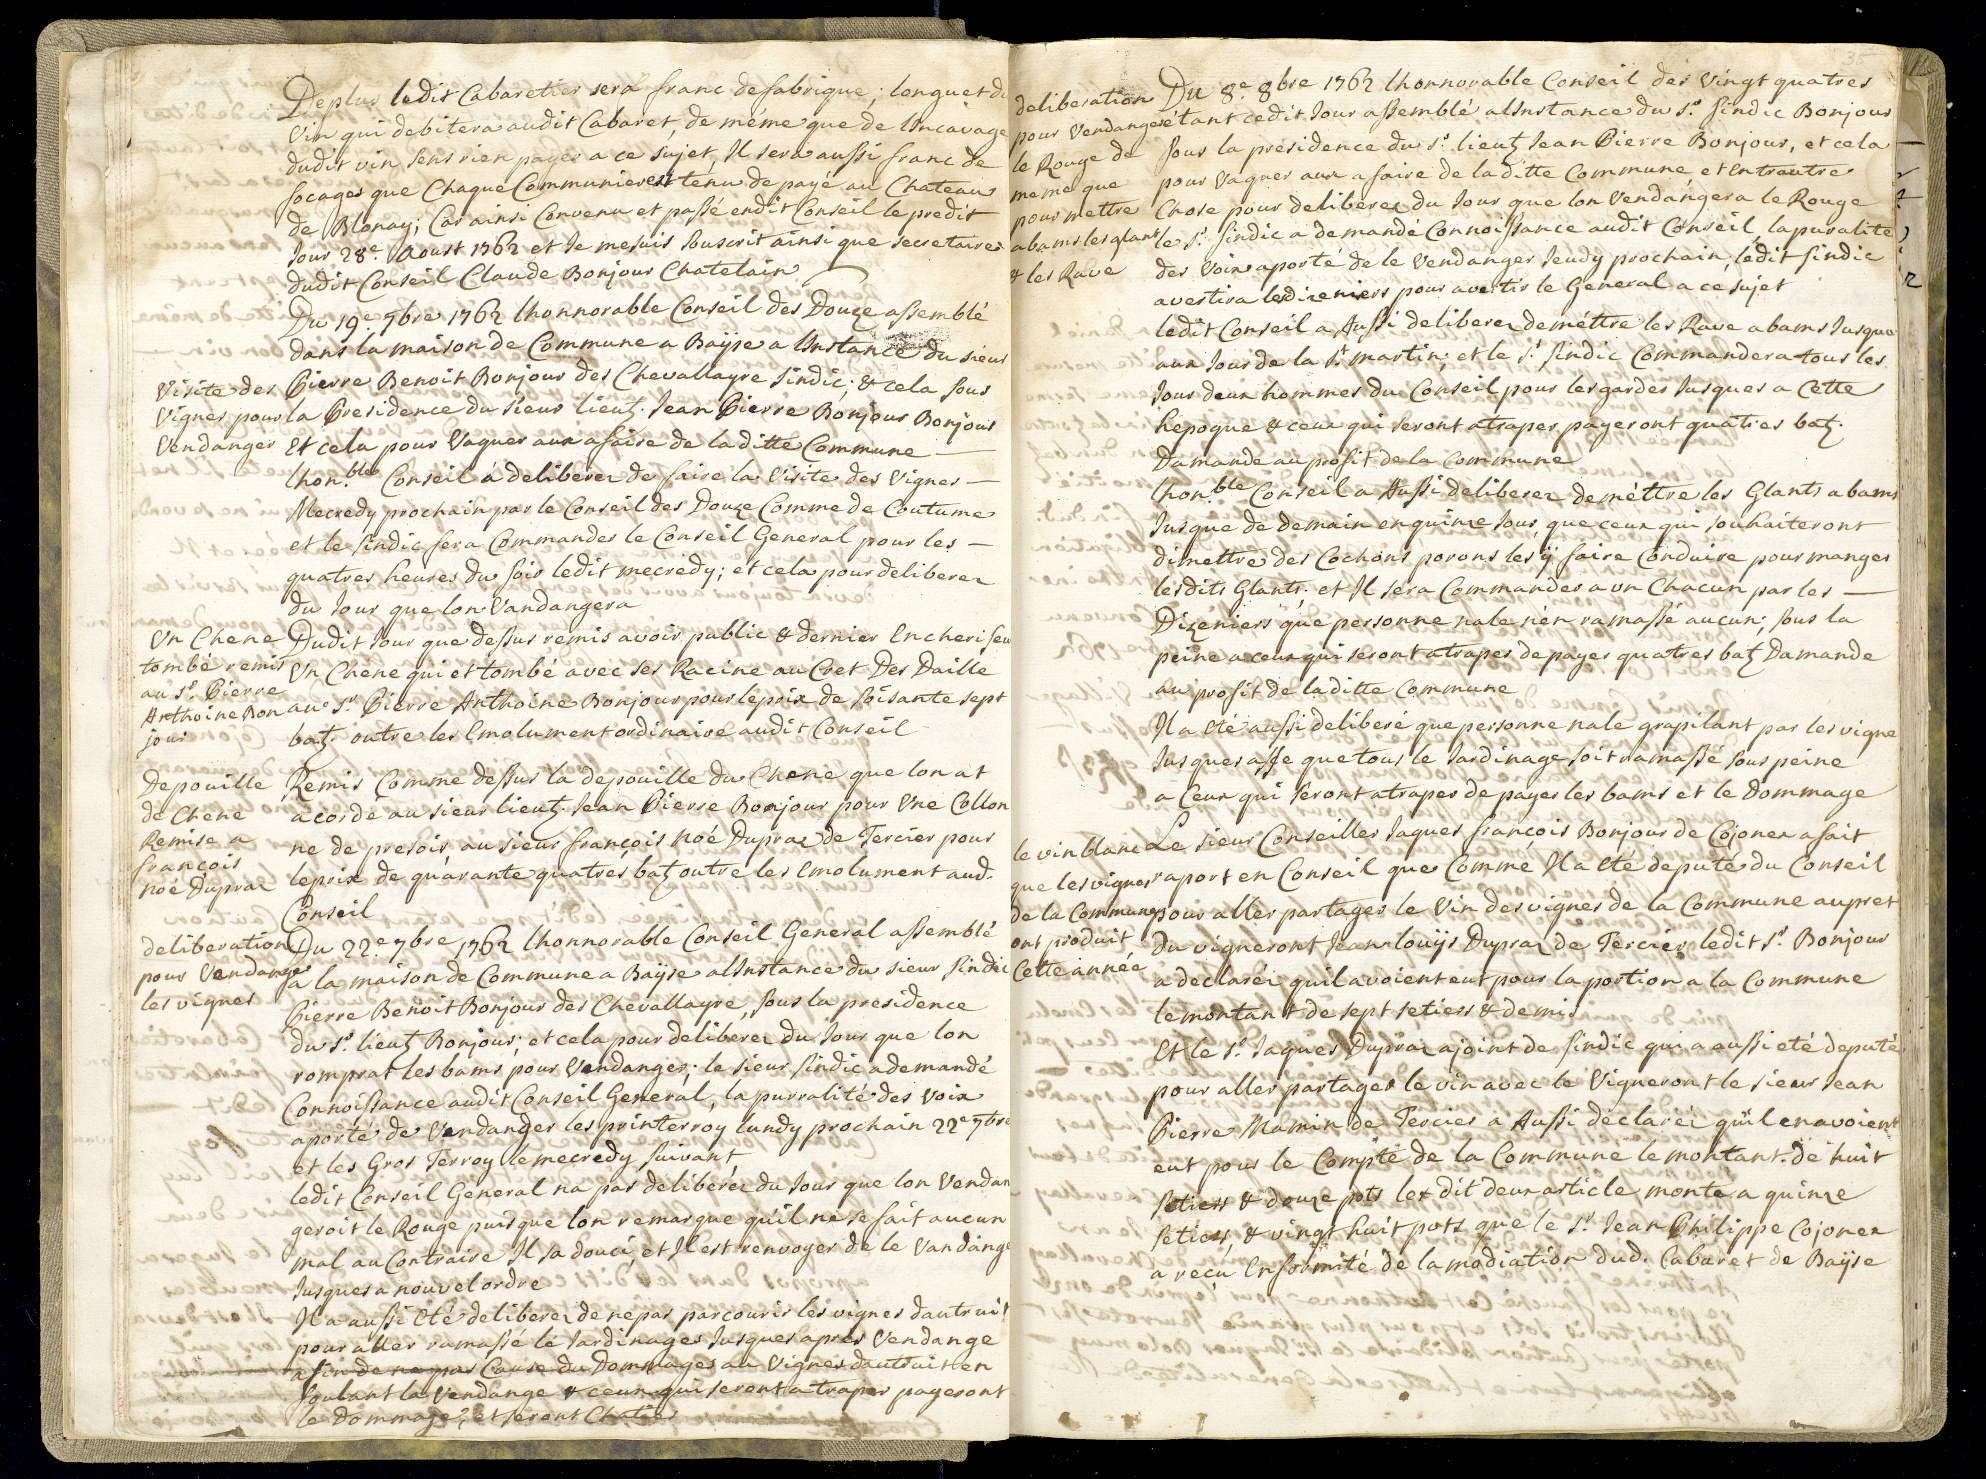 Deplus ledit Cabaretier sera franc de fabrique; longuet du
Vin qui debitera audit Cabaret, de méme que de Lincavage
dudit vin sens rien payer a ce sujet, Il sera aussi franc de
focages que Chaque Communier est tenu de payé au Chateau
de Blonay; Car ainsi Convenu et passé endit Conseil le predit
Jour 28e. Aoust 1762 et Je me suis souscrit ainsi que secretaire
dudit Conseil Claude Bonjour Chatelain
Du 19e. 7bre 1762 lhonnorable Conseil des Douze assemblé
dans la maison de Commune a Baÿse a Linstance du sieur
Visite des
Vignes pour
Vendanger
Pierre Benoit Bonjour des Chevallayre sindic; & cela sous
la Presidence du sieur lieut. Jean Pierre Bonjour Bonjour
Et cela pour Vaquer aux afaire de laditte Commune —
lhon.ble Conseil a deliberez de faire la Visite des Vignes —
Mecredy prochain par le Conseil des Douze Comme de Coutume
et le sindic fera Commander le Conseil General pour les —
quatres heures du soir ledit mecredy; et cela pour deliberer
du Jour que lon Vandangera
Un Chene
tombé remis
au sr. Pierre
Anthoine Bon
jour
Dudit Jour que dessus remis avoir public & dernier Encheriseu
Un Chene qui et tombé avec ses Racine au Cret Des Daille
au sr. Pierre Anthoine Bonjour pour leprix de soisante sept
batz. outre les Emolument ordinaire audit Conseil
Depouille
de Chene
Remise a
françois
noé Dupraz
Remis Comme dessus la depouille du Chene que lon at
acordé au sieur lieut. Jean Pierre Bonjour pour Une Collon
ne de presoir au sieur françois Noé Dupraz de Tercier pour
leprix de quarante quatres batz outre les Emolument aud.
Conseil
deliberation
pour Vendanger
les vignes
Du 22e 7bre 1762 lhonnorable Conseil General assemblé
a la maison de Commune a Baÿse alinstance du sieur sindic
Pierre Benoit Bonjour des Chevallayre, sous la presidence
du sr. lieut Bonjour; et cela pour deliberez du Jour que lon
romprat les bams pour Vendanger; le sieur sindic a demandé
Connoissance audit Conseil General, la purralité des Voix
aporté de Vendanger les printerroy lundy prochain 22e 7bre
et les Gros Terroy le mecredy suivant
ledit Conseil General na pas deliberéz du Jour que lon Vendan
geroit le Rouge puisque lon remarque qu'il ne se fait aucun
mal au Contraire Il sa douci, et Il est renvoyer de le Vandange
Jusques a nouvel ordre
Il a aussi Eté deliberez de ne pas parcourir les vignes dautruit
pour aller ramassé le Jardinages Jusques apres Vendange
afin de ne pas Cause du Dommages au Vignes dautruit en
foulant la Vendange & ceux qui seront atraper payeront
le Dommage, et seront Chatier
35
deliberation
pour Vendanger
le Rouge de
meme que
pour mettre
a bams les glant
& les Rave
Du 8e. 8bre 1762 lhonnorable Conseil des Vingt quatres
étant cedit Jour assemblé alinstance du sr. sindic Bonjour
sous la presidence du sr. lieut Jean Pierre Bonjour, et cela
pour vaquer aux afaire de laditte Commune, et Entrautre
Chose pour deliberez du Jour que lon Vendangera le Rouge
le sr. sindic a demandé Connoissance audit Conseil, la puralité
des Voix aporté de le Vendanger Jeudy prochain, ledit sindic
avestira les dizeniers pour avertir le General a ce sujet
ledit Conseil a Aussi deliberez demettre les Rave a bams Jusque
aux Jour de la st. martin; et le sr. sindic Commandera tous les
Jour deux hommes du Conseil pour les gardes Jusques a Cette
hepoque & ceux qui seront atraper payeront quatres batz.
Damande au profit de la Commune
lhon.ble Conseil a Aussi deliberez de mettre les Glants a bams
Jusque de demain en quinze Jour, que ceux qui souhaiteront
di mettre des Cochons porons les ÿ faire Conduire pour manger
lesdits Glants; et Il sera Commander a un Chacun par les —
Dizeniers que personne nale nen ramassé aucun; sous la
peine a ceux qui seront atraper de payer quatres batz Damande
au profit de laditte Commune
Il a Eté aussi deliberé que personne nale grapilant par les vigne
Jusques asse que tous le Jardinage soit ramassé sous peine
a Ceux qui seront atraper de payer les bams et le Dommage
le vin blanc
que les vignes
de la Commune
ont produit
Cette année
Le sieur Conseiller Jaques françois Bonjour de Cojonex a fait
raport en Conseil que Comme Il a Eté deputé du Conseil
pour aller partager le Vin des vignes de la Commune aupret
du vigneront Jean louÿs Dupraz de Tercier ledit sr. Bonjour
a declaréz quil avoient eut pour la portion a la Commune
le montant de sept setiers & demi
Et le sr. Jaques Dupraz ajoint de sindic qui a aussi eté deputé
pour aller partager le vin avec le Vigneront le sieur Jean
Pierre Mamin de Tercier a Aussi declaréz quïl en avoient
eut pour le Compte de la Commune le montant de huit
setiers & douze pots lex dit deux article monte a quinze
setiers, & vingt huit pots que le sr. Jean Philippe Cojonex
a reçu Enformité de la modiation dud. Cabaret de Baÿse